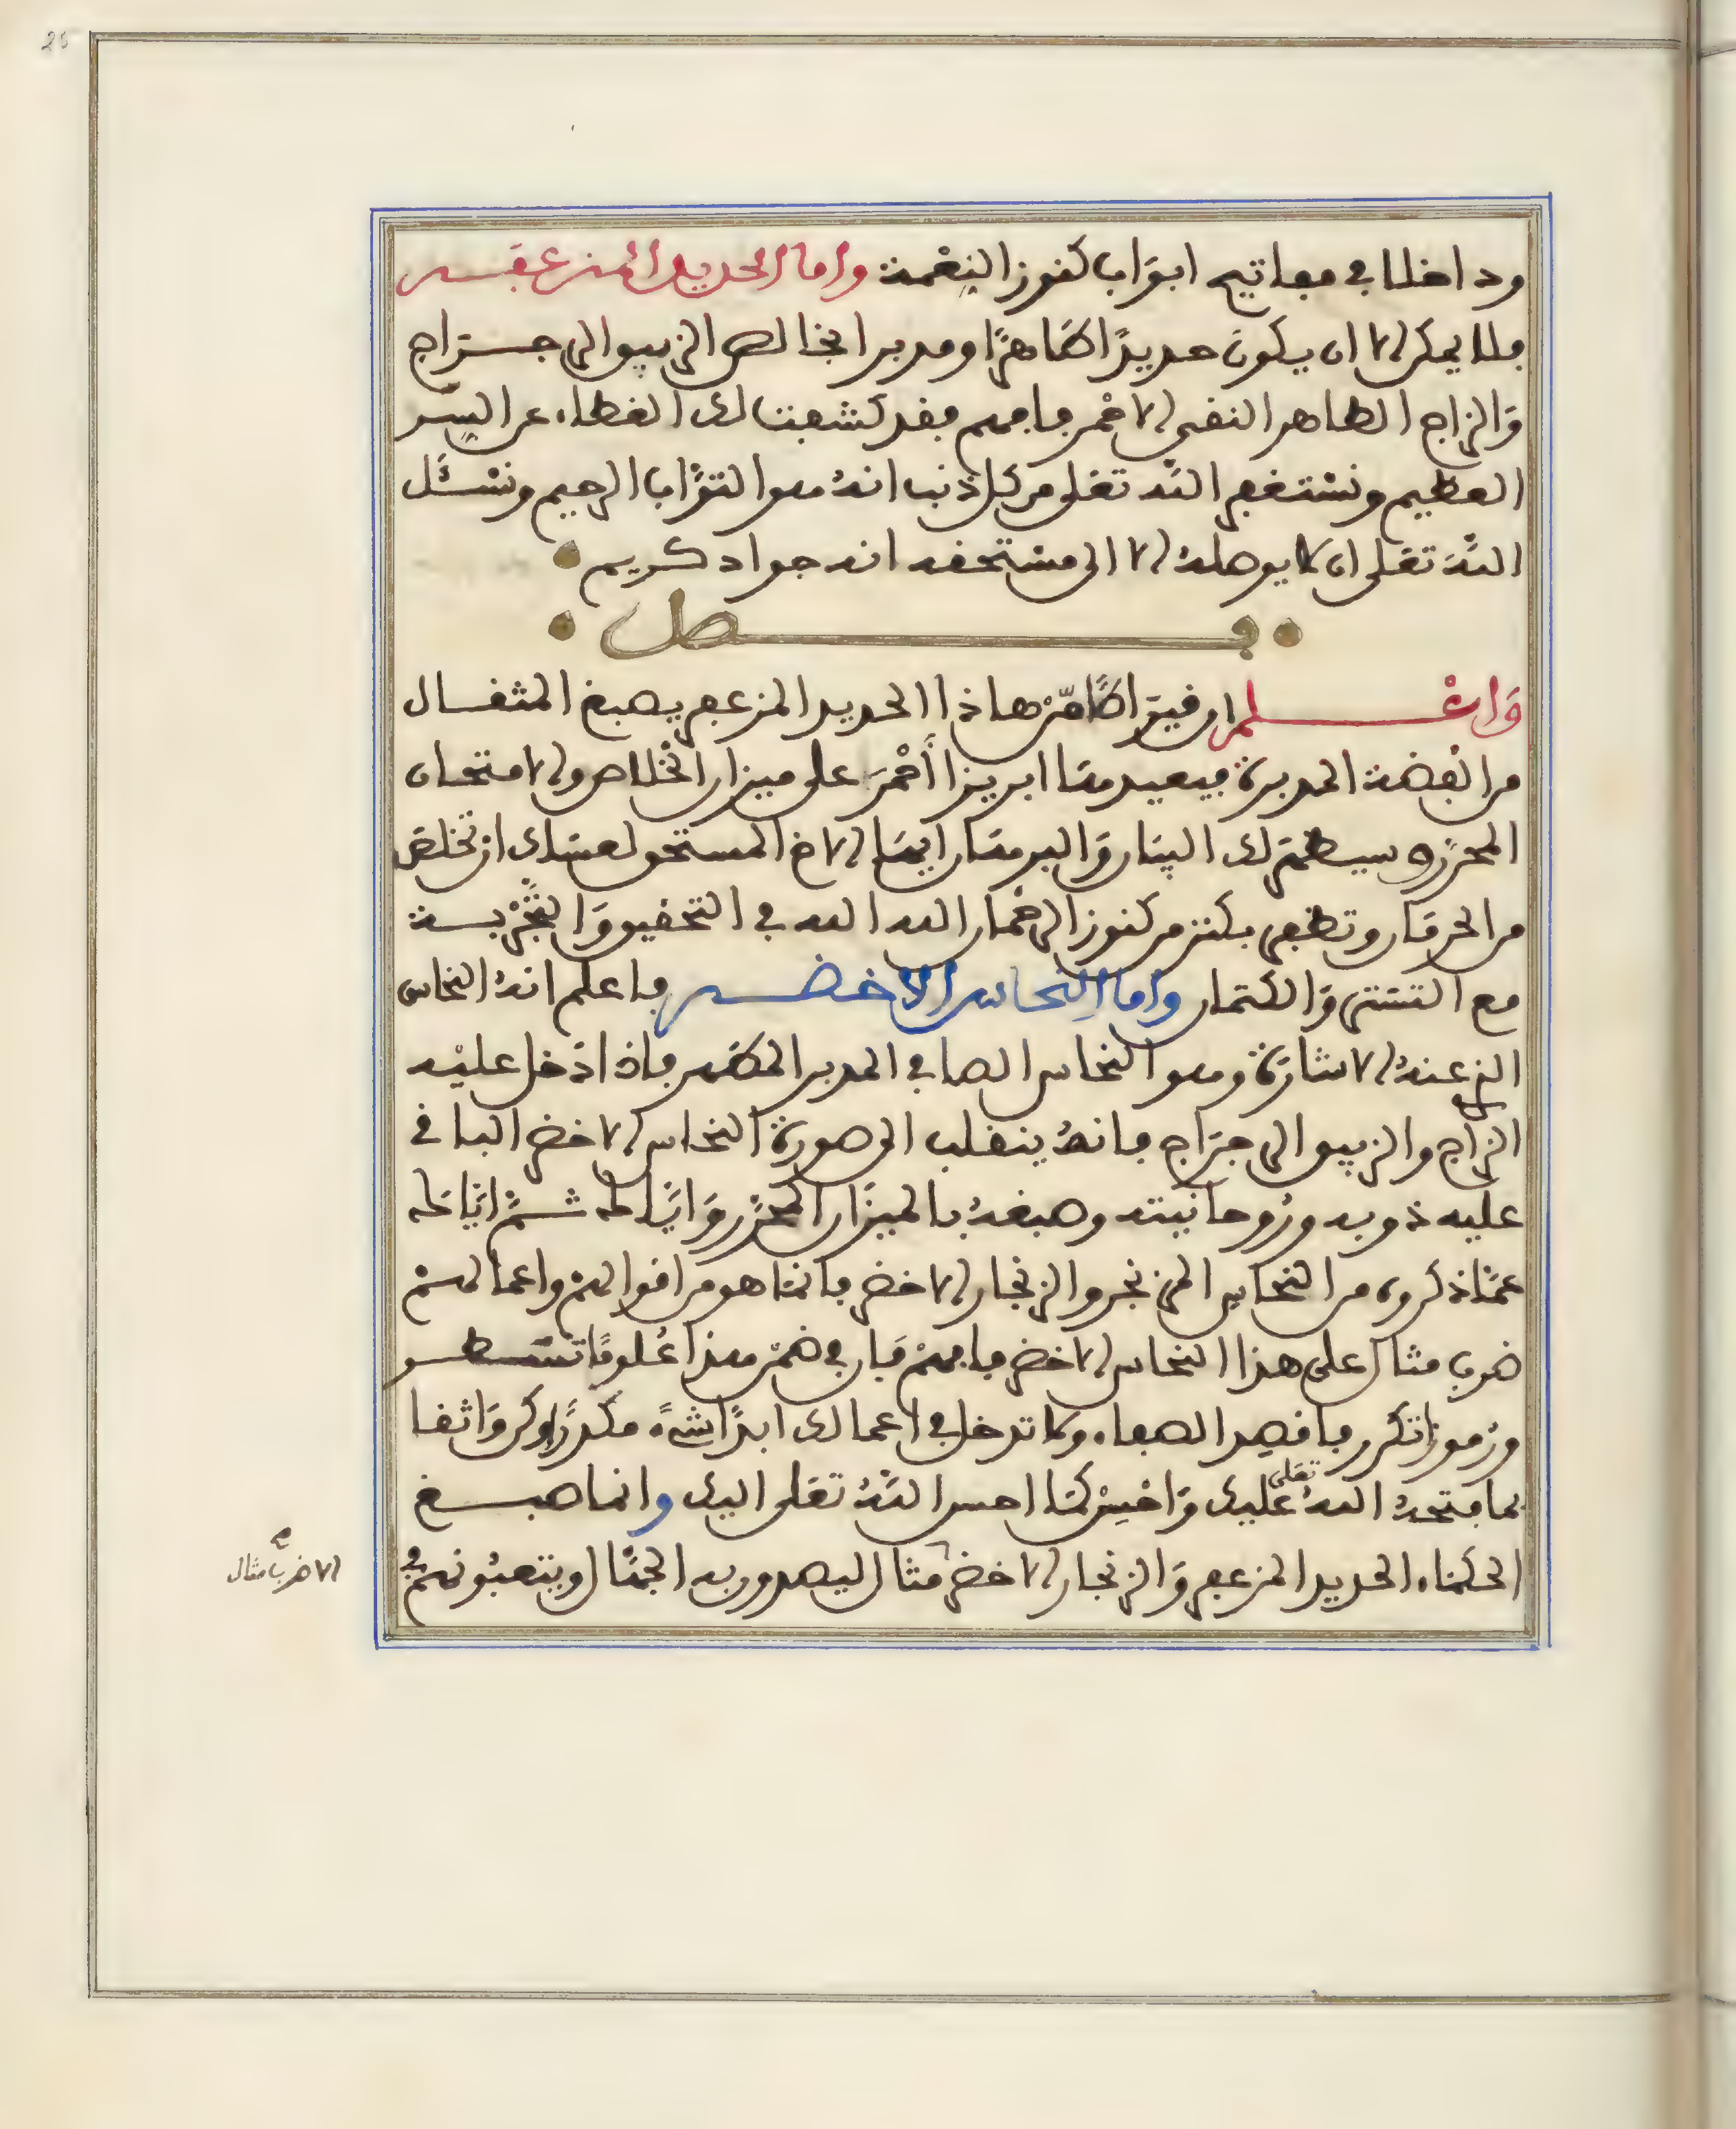 وداخلا في مفاتيح ابوَاب كنوز النِعْمة واما الحديد المزعفر
فلا يمكن الا ان يكونَ حديدًا طَاهرًا ومدبرا بخالص الزيبق الرجراج
وَالزاج الطاهر النقي الاحْمر فافهم فقد كشفت لك الغطاء عن السِّر
العظيم ونسْتغفر اللّه تعلى من كل ذنب انهُ هو التوَّاب الرحيم ونسْئَل
اللّه تعلى ان لا يوصلهُ الا الى مسْتحقه انه جواد كريم
فصل
وَاعْلم ان قيرَاطًا مّن هاذا الحديد المزعفر يصبغ المثقال
من الفِضة المدبرة فيعيدها ابريزا أحْمَر على ميزان الخْلاص والامتحان
المحرّر وسيظهَر لك البيَان وَالبرهَان ايهَا الاخ المستحق لعسَاك ان تخْلصَ
من الحرمَان وتظفر بكنز من كنوز الرحْمَان الله الله في التحقيق وَالتَّجْربة
مع التستر وَالكتمان واما النحاس الاخضر فاعلم انهُ النحاس
الذي عنهُ الاشارَة وهو النحاس الصافي المدبر المطهر فاذا ادْخل عليْه
الزاج والزيبق الرجرَاج فانهُ ينقلب الى صورة النحاس الاخضر الباقي
عليه ذوبه ورُوحانيته وصبغهُ بالميزَان المحرّر وَايّاك ثمَّ ايَّاك
عمَّا ذكروه من النحاس المزنجر والزنجار الاخضر فانمَا هو من اقوالهمْ واعمالهمْ
ضرب مثال على هذا النحاس الاخضر فافهمْ فان في ضمْن هذا عُلومًا تسَطر
ورُموزا تكرر فاقصِد الصفاء ولا تدخل في اعمالك ابدًا شيءً مكدرًا وكن وَاثقا
بما فتحهُ اللهُ تعلى عليك وَاحْسِنْ كمَا احسن اللّهُ تعلى اليك وانما صبغ
الحكمَاء الحديد المزعفر وَالزنجار الاخضر مثال ليصدون به الجهَّال ويتعبُونهمْ في
الا ضرب مثال صح